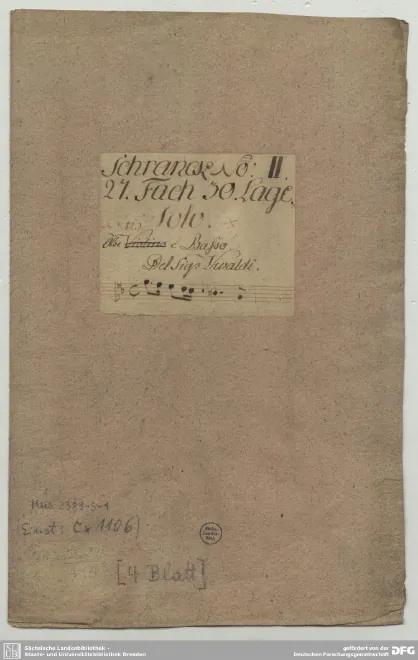 Schranck No: II.
27. Fach 30. Lage.
Solo.
Violino e Basso.
Del Sigr Vivaldi.
Mus 2389-S-1
(inst: Cx 1106)
[4 Blatt]
SLUB
Sächsische Landesbibliothek -
Staats- und Universitätsbibliothek Dresden
gefördert von der
Deutschen Forschungsgemeinschaft
DFG